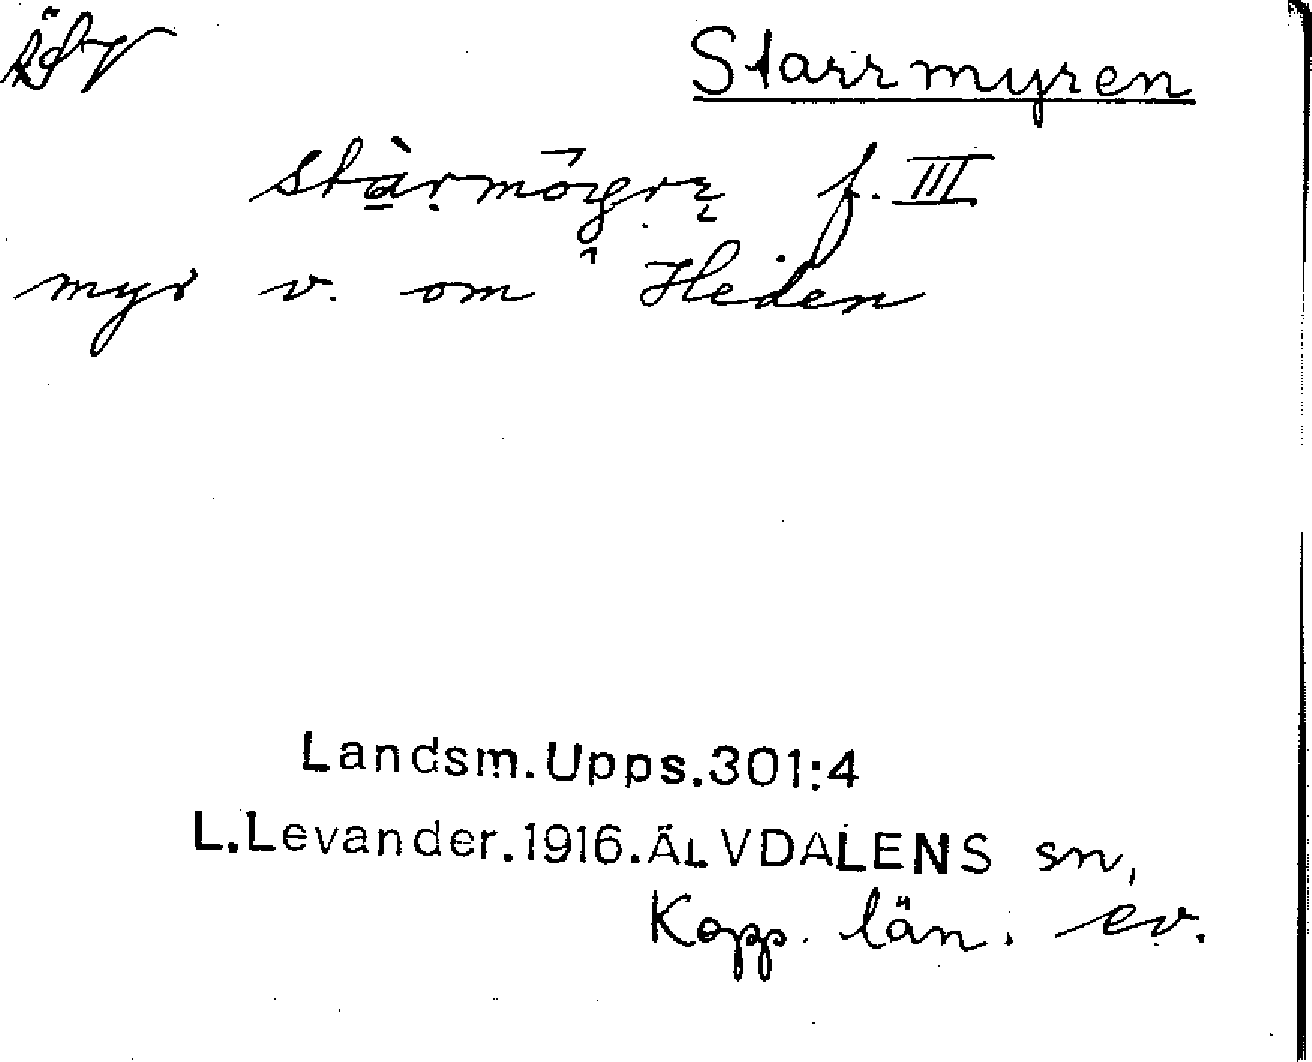 Starrmyren
f. III
myr v. om Heden
Landsm.Upps.301:4
L.Levander.1916.ÄLVDALENS sn,
Kopp. län. ev.